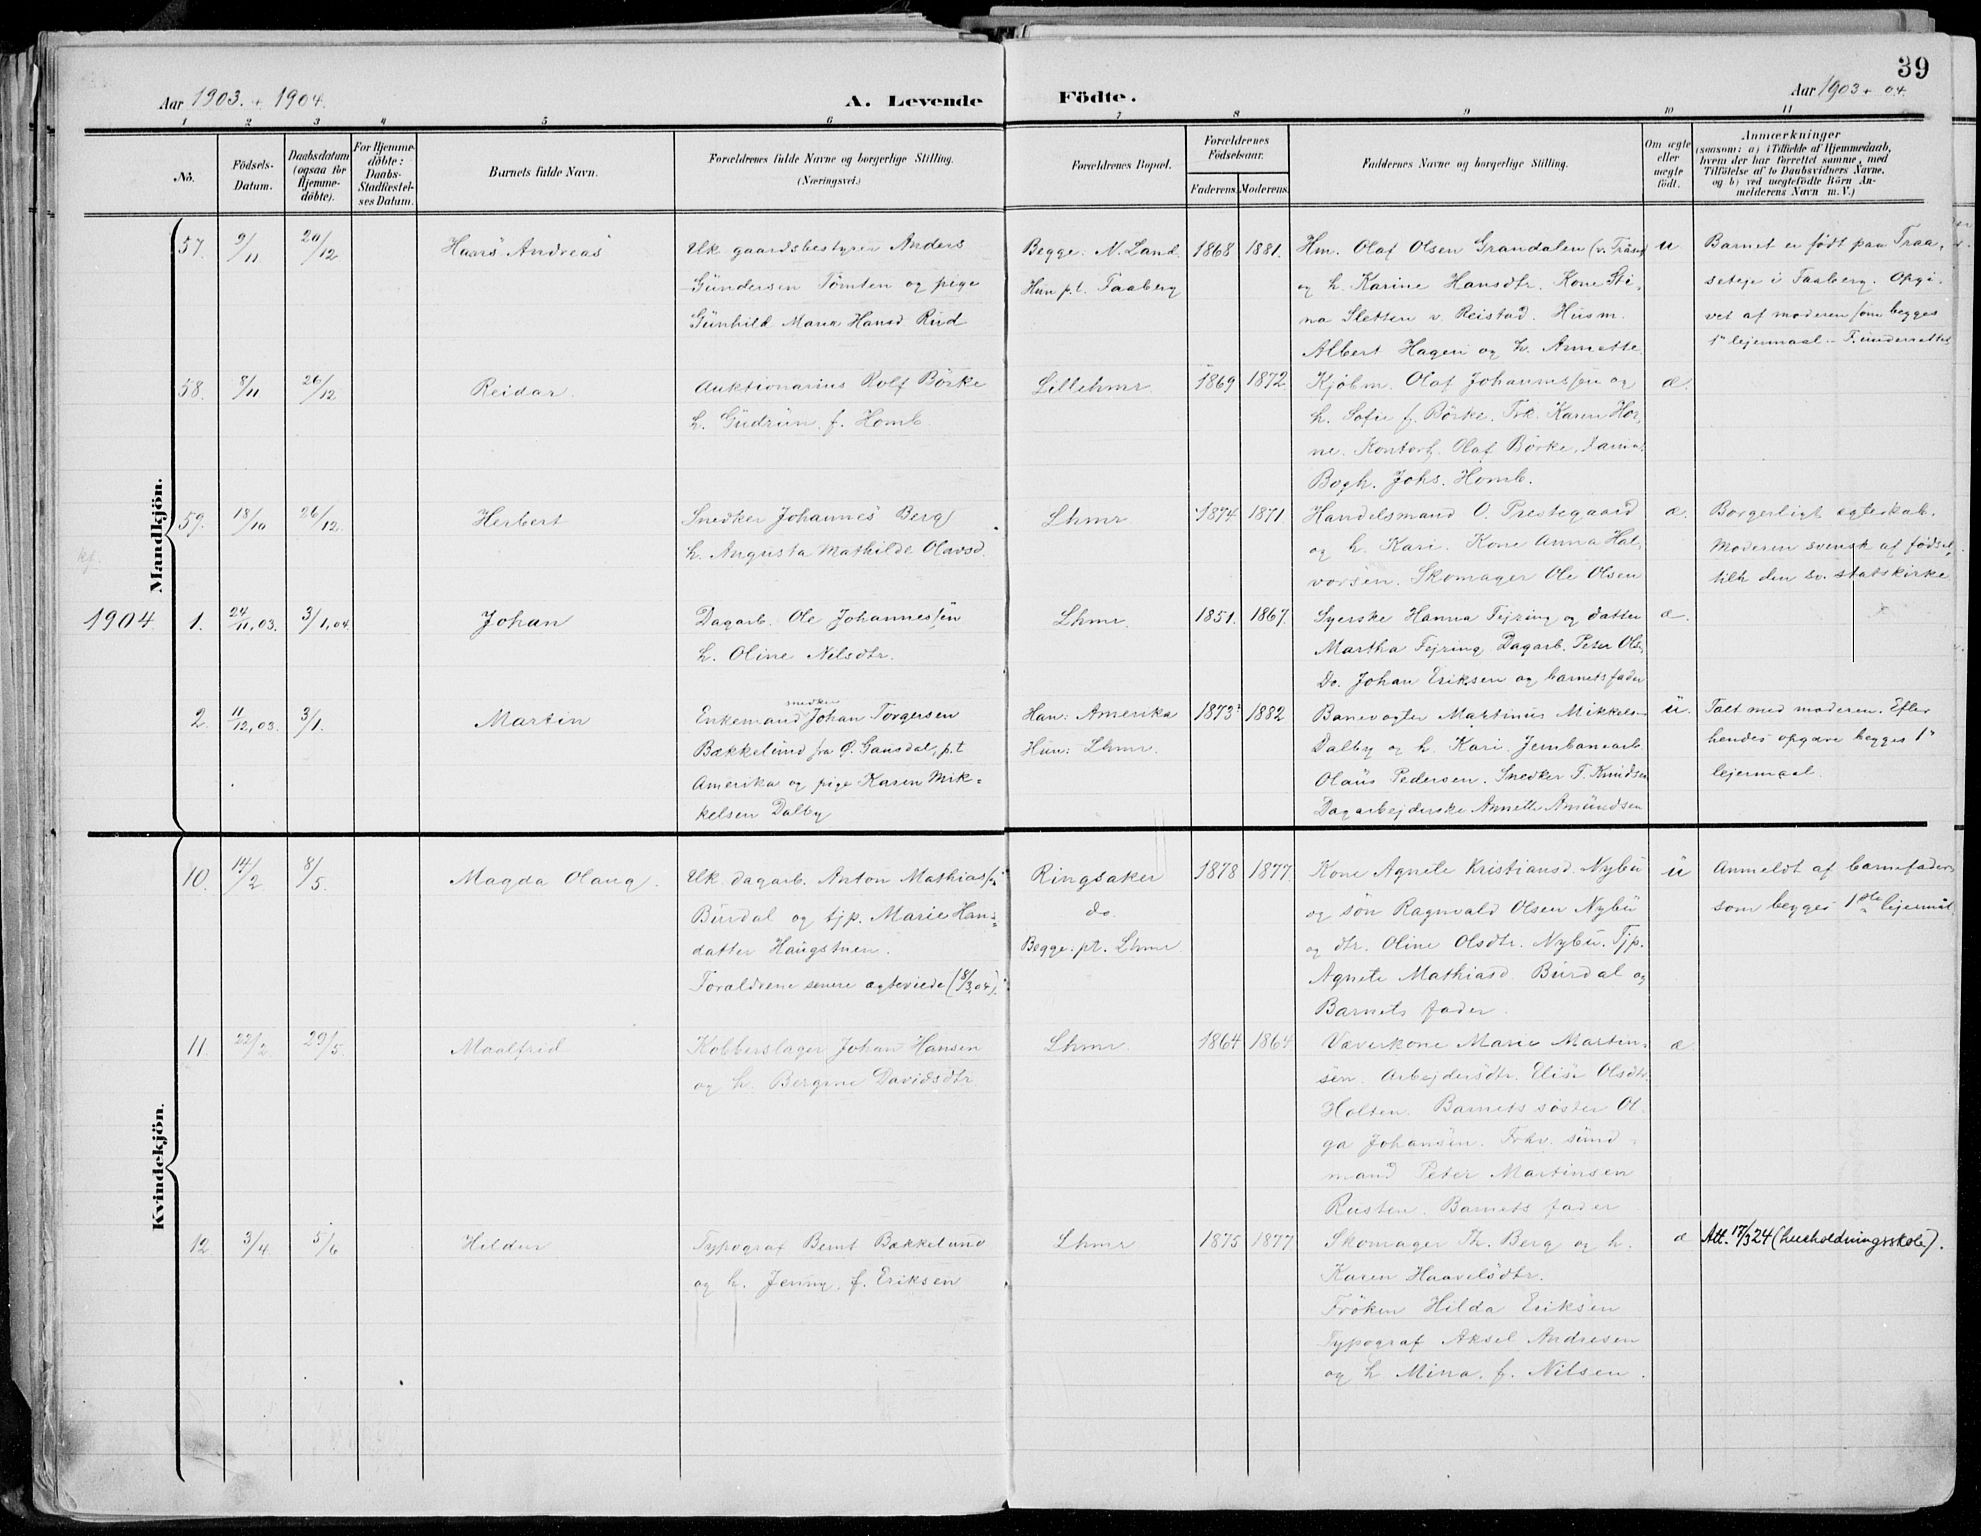 39
Aar 1903. + 1904.
A. Levende Födte.
Aar 1903 + 04.
1 2 3 4 5 6 7 8 9 10 11
No.
Födsels-Datum.
Daabsdatum (ogsaa for Hjemme-döbte).
For Hjemme-döbte: Daabs-Stadfæstel-ses Datum.
Barnets fulde Navn.
Forældrenes fulde Navne og borgerlige Stilling.
(Næringsvei.)
Forældrenes Bopæl.
Forældrenes Födselsaar.
Faderens. Moderens.
Faddernes Navne og borgerlige Stilling.
Om ægte eller uægte födt.
Anmærkninger
(saasom: a) i Tilfælde af Hjemmedaab,
hvem der har forrettet samme, med
Tilföielse af to Daabsvidners Navne,
og b) ved uægtefödte Börn An-
melderens Navn m. V.)
Mandkjön.
57. 9/11 20/12 Hans Andreas
Uk. gaardsbestyrer Anders
Gundersen Tömten og pige
Gunhild Maria Hansd Rud
Begge: N. Land.
Hun p.t. Faaberg
1868 1881.
Hm. Olaf Olsen Grandalen
og h. Karine Hansdtr. Kone Sti-
na Sletten v. Reistad. Husm.
Albert Hagen og h. Annette
u
Barnet er født paa Traa-
seteje i Faaberg. Opgi-
vet af moderen som begges
1ste lejermaal
58. 8/11 26/12 Reidar.
Auktionarius Rolf Börke
h. Gudrun f. Homb
Lillehmr.
1869 1872.
Kjøbm. Olaf Johannessen og
h. Sofie f. Börke. Frk. Karen Hor-
ne. Kontorf. Olaf Börke,
Bogh. Johs. Homb.
æ.
59. 18/10 26/12. Herbert
Snedker Johannes Berg
h. Augusta Mathilde Olavsd.
Lhmr.
1874. 1871.
Handelsmand O. Prestegaard
og h. Kari. Kone Anna Hal-
vorsen. Skomager Ole Olsen
æ.
Borgerligt egteskab.
Moderen svensk af fødsel,
tilh den sv. statskirke
1904
1. 24/11,03. 3/1,04. Johan
Dagarb. Ole Johannessen
h. Oline Nilsdtr.
Lhmr.
1851. 1867.
Syerske Hanna Fejring og datter
Martha Fejring Dagarb. Peter Ols.
Do. Johan Eriksen og barnets fader
æ.
2. 11/12,03. 3/1. Martin
snedker
Enkemand Johan Torgersen
Bækkelund fra Ø. Gausdal, p.t
Amerika og pige Karen Mik-
kelsen Dalby
Han: Amerika
Hun: Lhmr.
1873? 1882
Banevogter Martinus Mikkels-
Dalby og h. Kari. Jernbanearb.
Olaus Pedersen. Snedker F. Knudsen
Dagarbejderske Annette Amundsen
u.
Talt med moderen. Efter
hendes opgave begges 1ste
lejermaal.
Kvindekjön.
10. 14/2 8/5. Magda Olaug.
Uk. dagarb. Anton Mathiass.
Burdal og tjp. Marie Han-
datter Haugstuen.
Forældrene senere ægteviede (8/3,04).
Ringsaker
do.
Begge: pt. Lhmr
1878 1877.
Kone Agnete Kristiansd. Nybu
og søn Ragnvald Olsen Nybu
og dtr. Oline Olsdtr. Nybu. Tjp.
Agnete Mathiasd. Burdal og
Barnets fader.
u
Anmeldt af barnefader
som begges 1ste lejermaal
11. 22/2 29/5. Maalfrid
Kobberslager Johan Hansen
og h. Bergine Davidsdtr.
Lhmr.
1864 1864.
Væverkone Marie Martin-
sen. Arbejdersdtr. Elise Olsdtr
Holten. Barnets søster Ol-
ga Johansen. Frhv. sund-
mand Peter Martinsen
Rusten. Barnets fader
æ.
12. 3/4. 5/6 Hildur
Typograf Bernt Bækkelund
og h. Jenny f. Eriksen
Lhmr
1875 1877
Skomager Th. Berg og h.
Karen Haavelsdtr.
Frøken Hilda Eriksen
Typograf Aksel Andresen
og h Mina f. Nilsen.
æ
Att. 17/3 24 (husholdningsskole).